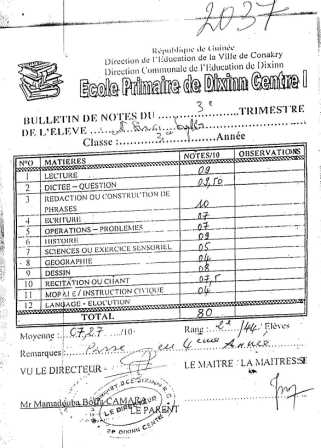 2037
République de Guinée
Direction de l'Education de la Ville de Conakry
Direction Communale de l'Education de Dixinn
Ecole Primaire de Dixinn Centre I
BULLETIN DE NOTES DU 3e TRIMESTRE
DE L'ELEVE
Classe : 3 Année
N°O MATIERES NOTES/10 OBSERVATIONS
1 LECTURE 09
2 DICTEE – QUESTION 09,50
3 REDACTION OU CONSTRUCTION DE PHRASES 10
4 ECRITURE 07
5 OPERATIONS – PROBLEMES 07
6 HISTOIRE 09
7 SCIENCES OU EXERCICE SENSORIEL 05
8 GEOGRAPHIE 04
9 DESSIN 08
10 RECITATION OU CHANT 07,5
11 MORALE / INSTRUCTION CIVIQUE 04
12 LANGAGE - ELOCUTION
TOTAL 80
Moyenne : 07,27 /10- Rang : 2e /44 Elèves
Remarques : Passe en 4ème Année
VU LE DIRECTEUR LE MAITRE \ LA MAITRESSE
Mr Mamadouba CAMARA
LE DIRECTEUR
LE PARENT
EP DIXINN CENTRE